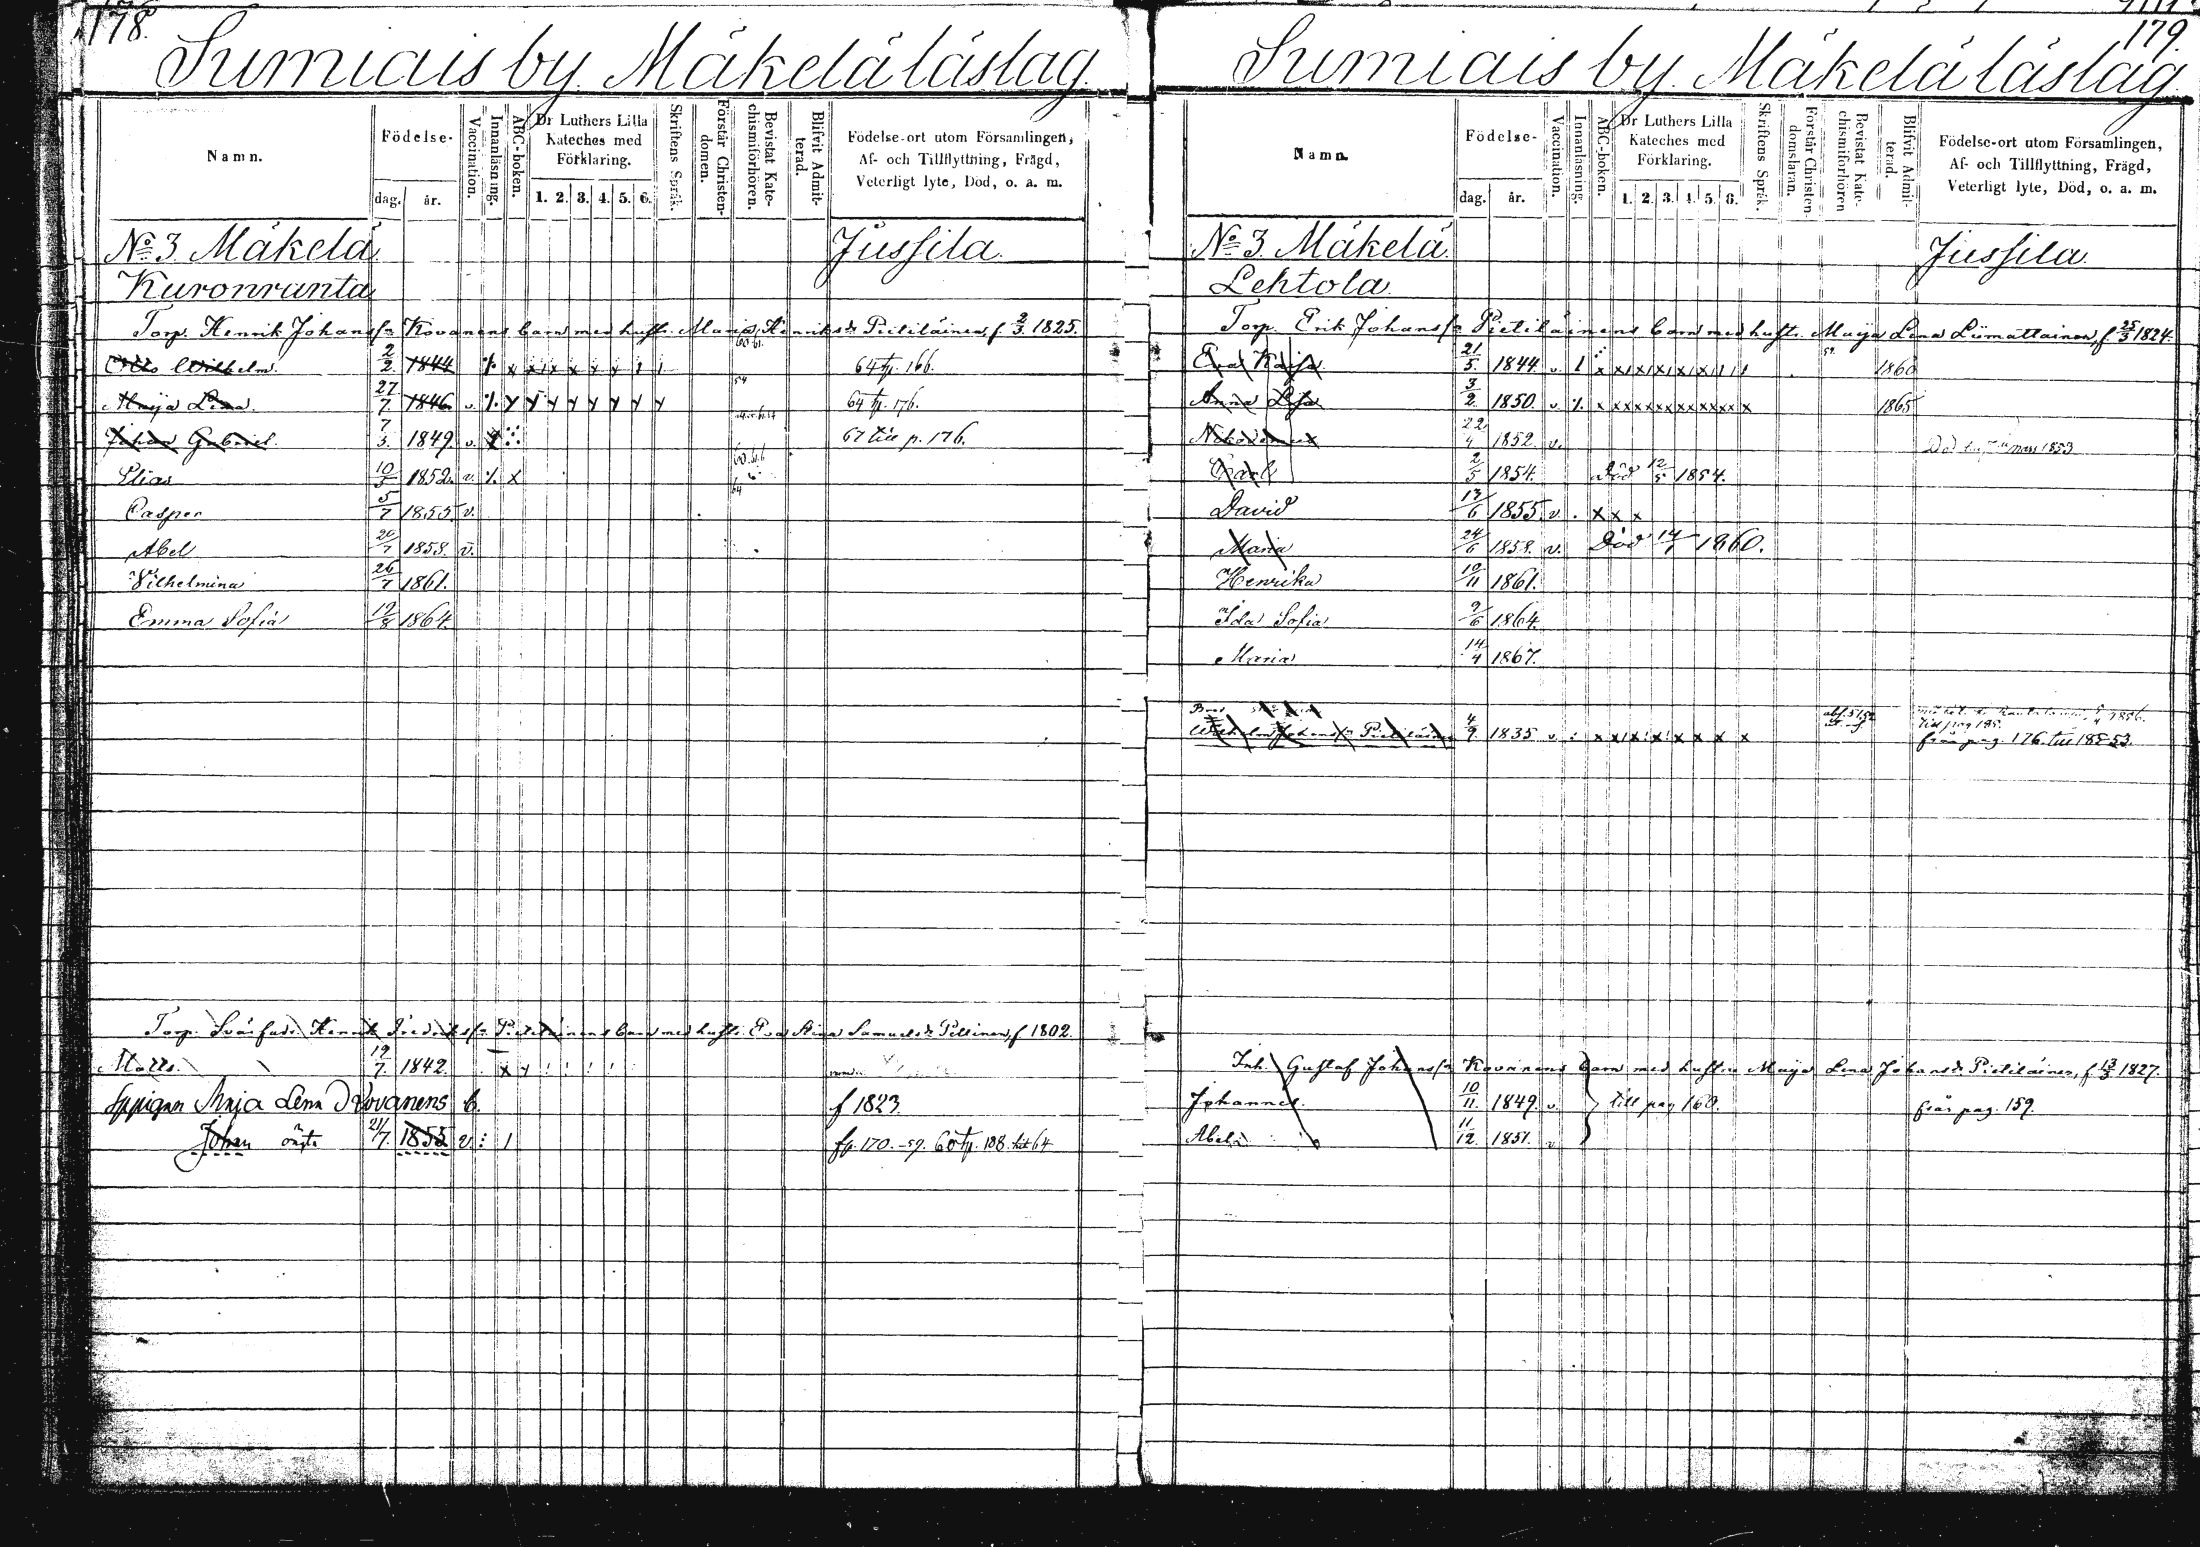 178.
Sumiais by. Mäkelä läslag.
Namn.
Födelse-
dag. år.
Vaccination.
Innanläsning.
ABC-boken.
Dr Luthers Lilla
Kateches med
Förklaring.
1. 2. 3. 4. 5. 6.
Skriftens Språk.
Förstår Christen-
domen.
Bevistat Kate-
chismiförhören.
Blifvit Admit-
terad.
Födelse-ort utom Församlingen,
Af- och Tillflyttning, Frägd,
Veterligt lyte, Död, o. a. m.
No 3 Mäkelä Jussila
Kuronranta
Torp. Henrik Johansson Kovanens barn med hustr. Maria Henriksdr Pietiläinen, f. 2/3 1825.
Otto Wilhelm 2/2 1844 x x x x x x 64 tp. 166.
Maja Lena 27/7 1846 v. 64 tp. 176.
Johan Gabriel 7/3 1849. v. 67 till p. 176.
Elias 10/5 1852. v. x
Casper 5/7 1855. v.
Abel 20/7 1858. v.
Vilhelmina 26/7 1861.
Emma Sofia 19/8 1864.
Torp. Henrik Fredriksson Pietiläinens barn med hustr. Eva Stina Samuelsdr Pellinen, f 1802.
Matts 19/7 1842.
Maja Lena Kovanens b. f 1823.
Johan 21/7 1855 v. fp. 170.-59. 60 tp. 188. 64
179.
Sumiais by. Mäkelä läslag.
Namn.
Födelse-
dag. år.
Vaccination.
Innanläsning.
ABC-boken.
Dr Luthers Lilla
Kateches med
Förklaring.
1. 2. 3. 4. 5. 6.
Skriftens Språk.
Förstår Christen-
domsläran.
Bevistat Kate-
chismiförhören
Blifvit Admit-
terad.
Födelse-ort utom Församlingen,
Af- och Tillflyttning, Frägd,
Veterligt lyte, Död, o. a. m.
No 3. Mäkelä. Jussila
Lehtola
Torp. Erik Johansson Pietiläinens barn med hustr. Maija Lena Liimattainen, f. 25/3 1824.
Eva Kajsa 21/5 1844 v. 1860
Anna Lisa 3/2 1850. v. 1865
Nikodemus 22/4 1852. v. Död 1853
Carl 2/5 1854. Död 12/5 1854.
David 13/6 1855. v. x x x
Maria 24/6 1858. v. Död 14/1 1860.
Henrika 10/11 1861.
Ida Sofia 9/6 1864.
Maria 14/4 1867.
Wilhelm Johansson Pietiläinen 4/9 1835 v. från pag. 176. till 185 53.
Inh. Gustaf Johansson Kovanens barn med hustru Maija Lena Johansdr Pietiläinen, f. 13/3 1827.
Johannes 10/11. 1849. v. till pag 160. från pag. 159.
Abel 11/12. 1851. v